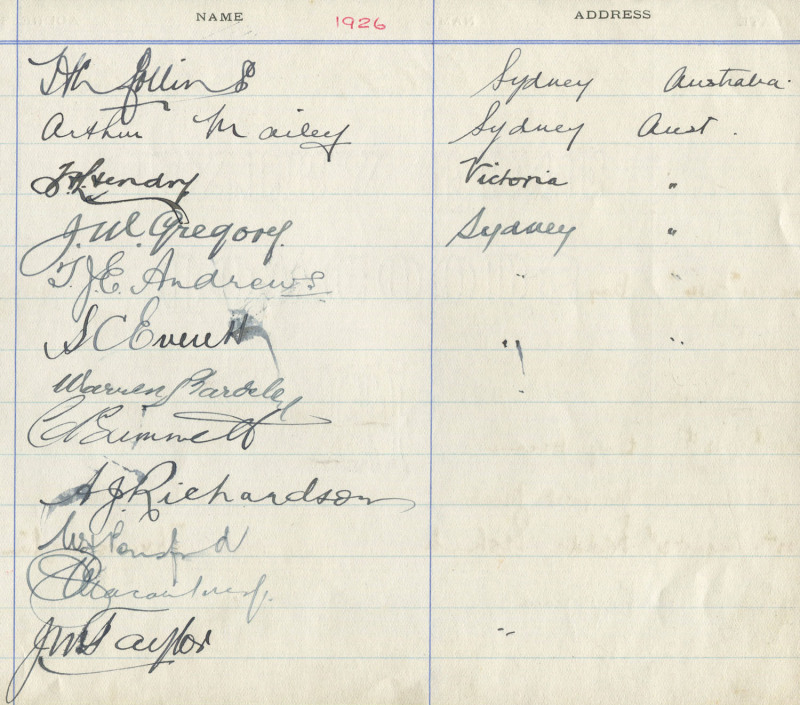 NAME 1926 ADDRESS
H L Collins Sydney Australia.
Arthur Mailey Sydney Aust.
H L Hendry Victoria "
J. M. Gregory. Sydney "
T. J. E. Andrews " "
S C Everett " "
Warren Bardsley "
C V Grimmett
A J Richardson
W H Ponsford
C G Macartney.
J M Taylor "